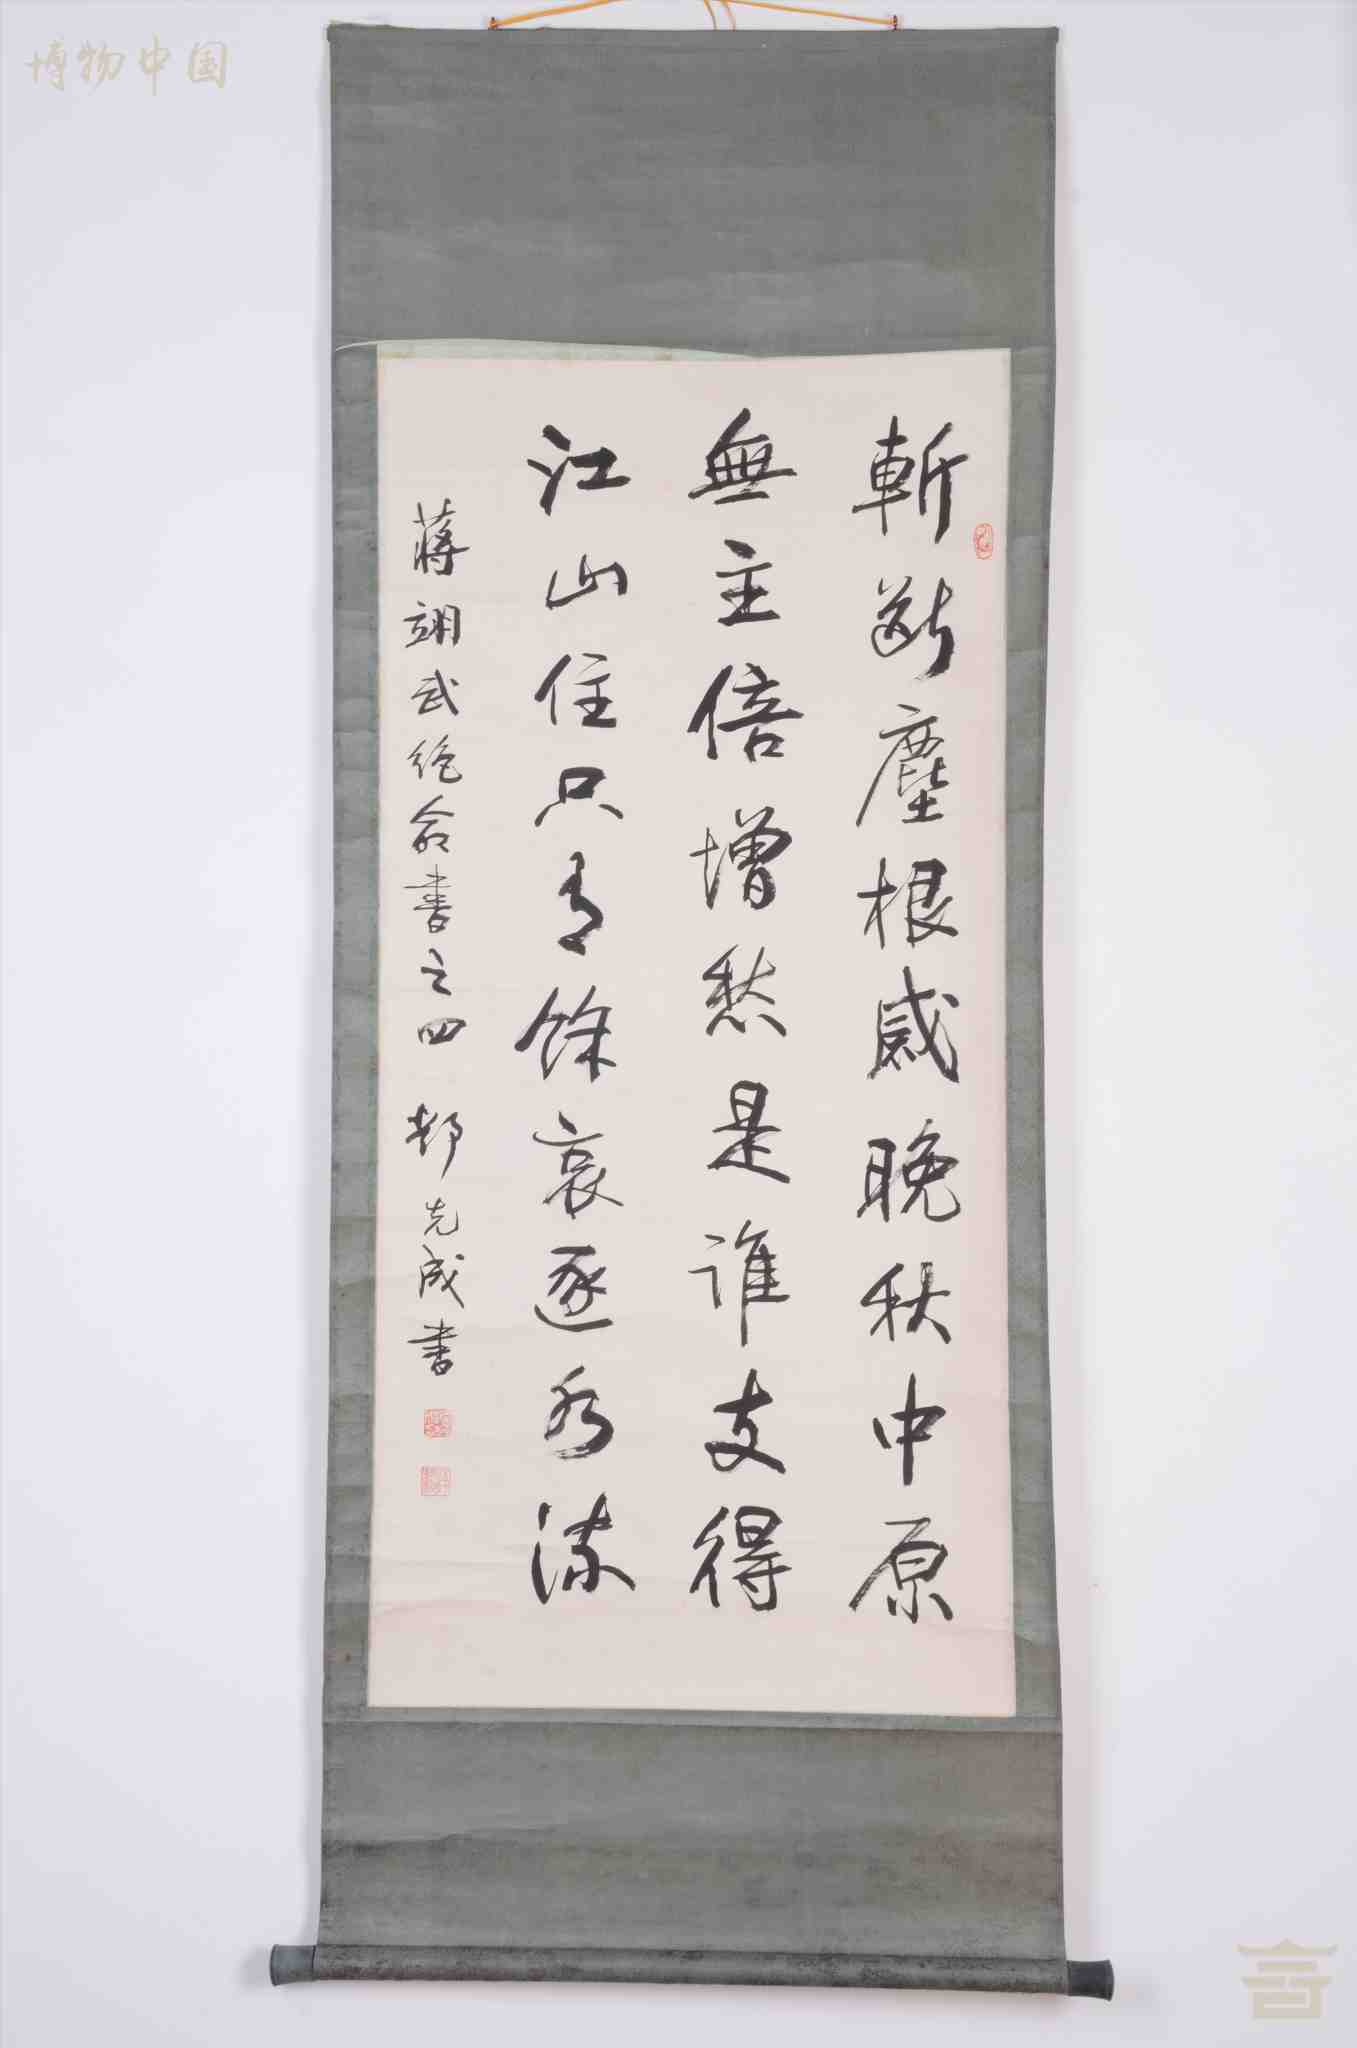 斬斷塵根感晚秋中原
無主倍增愁是誰支得
江山住只有餘哀逐水流
蔣翊武絕命書之四 鄢先成書
博物中国